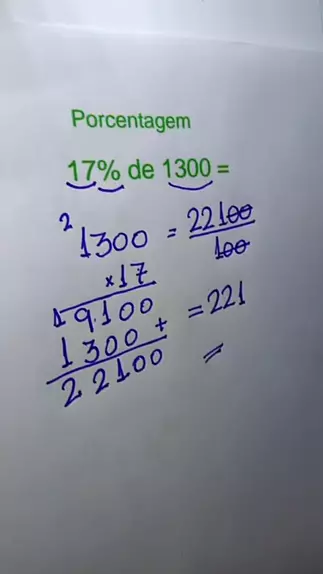 Porcentagem
17% de 1300 =
2
1300 = 22100
100
×17
1
9.100 = 221
1300 +
22100